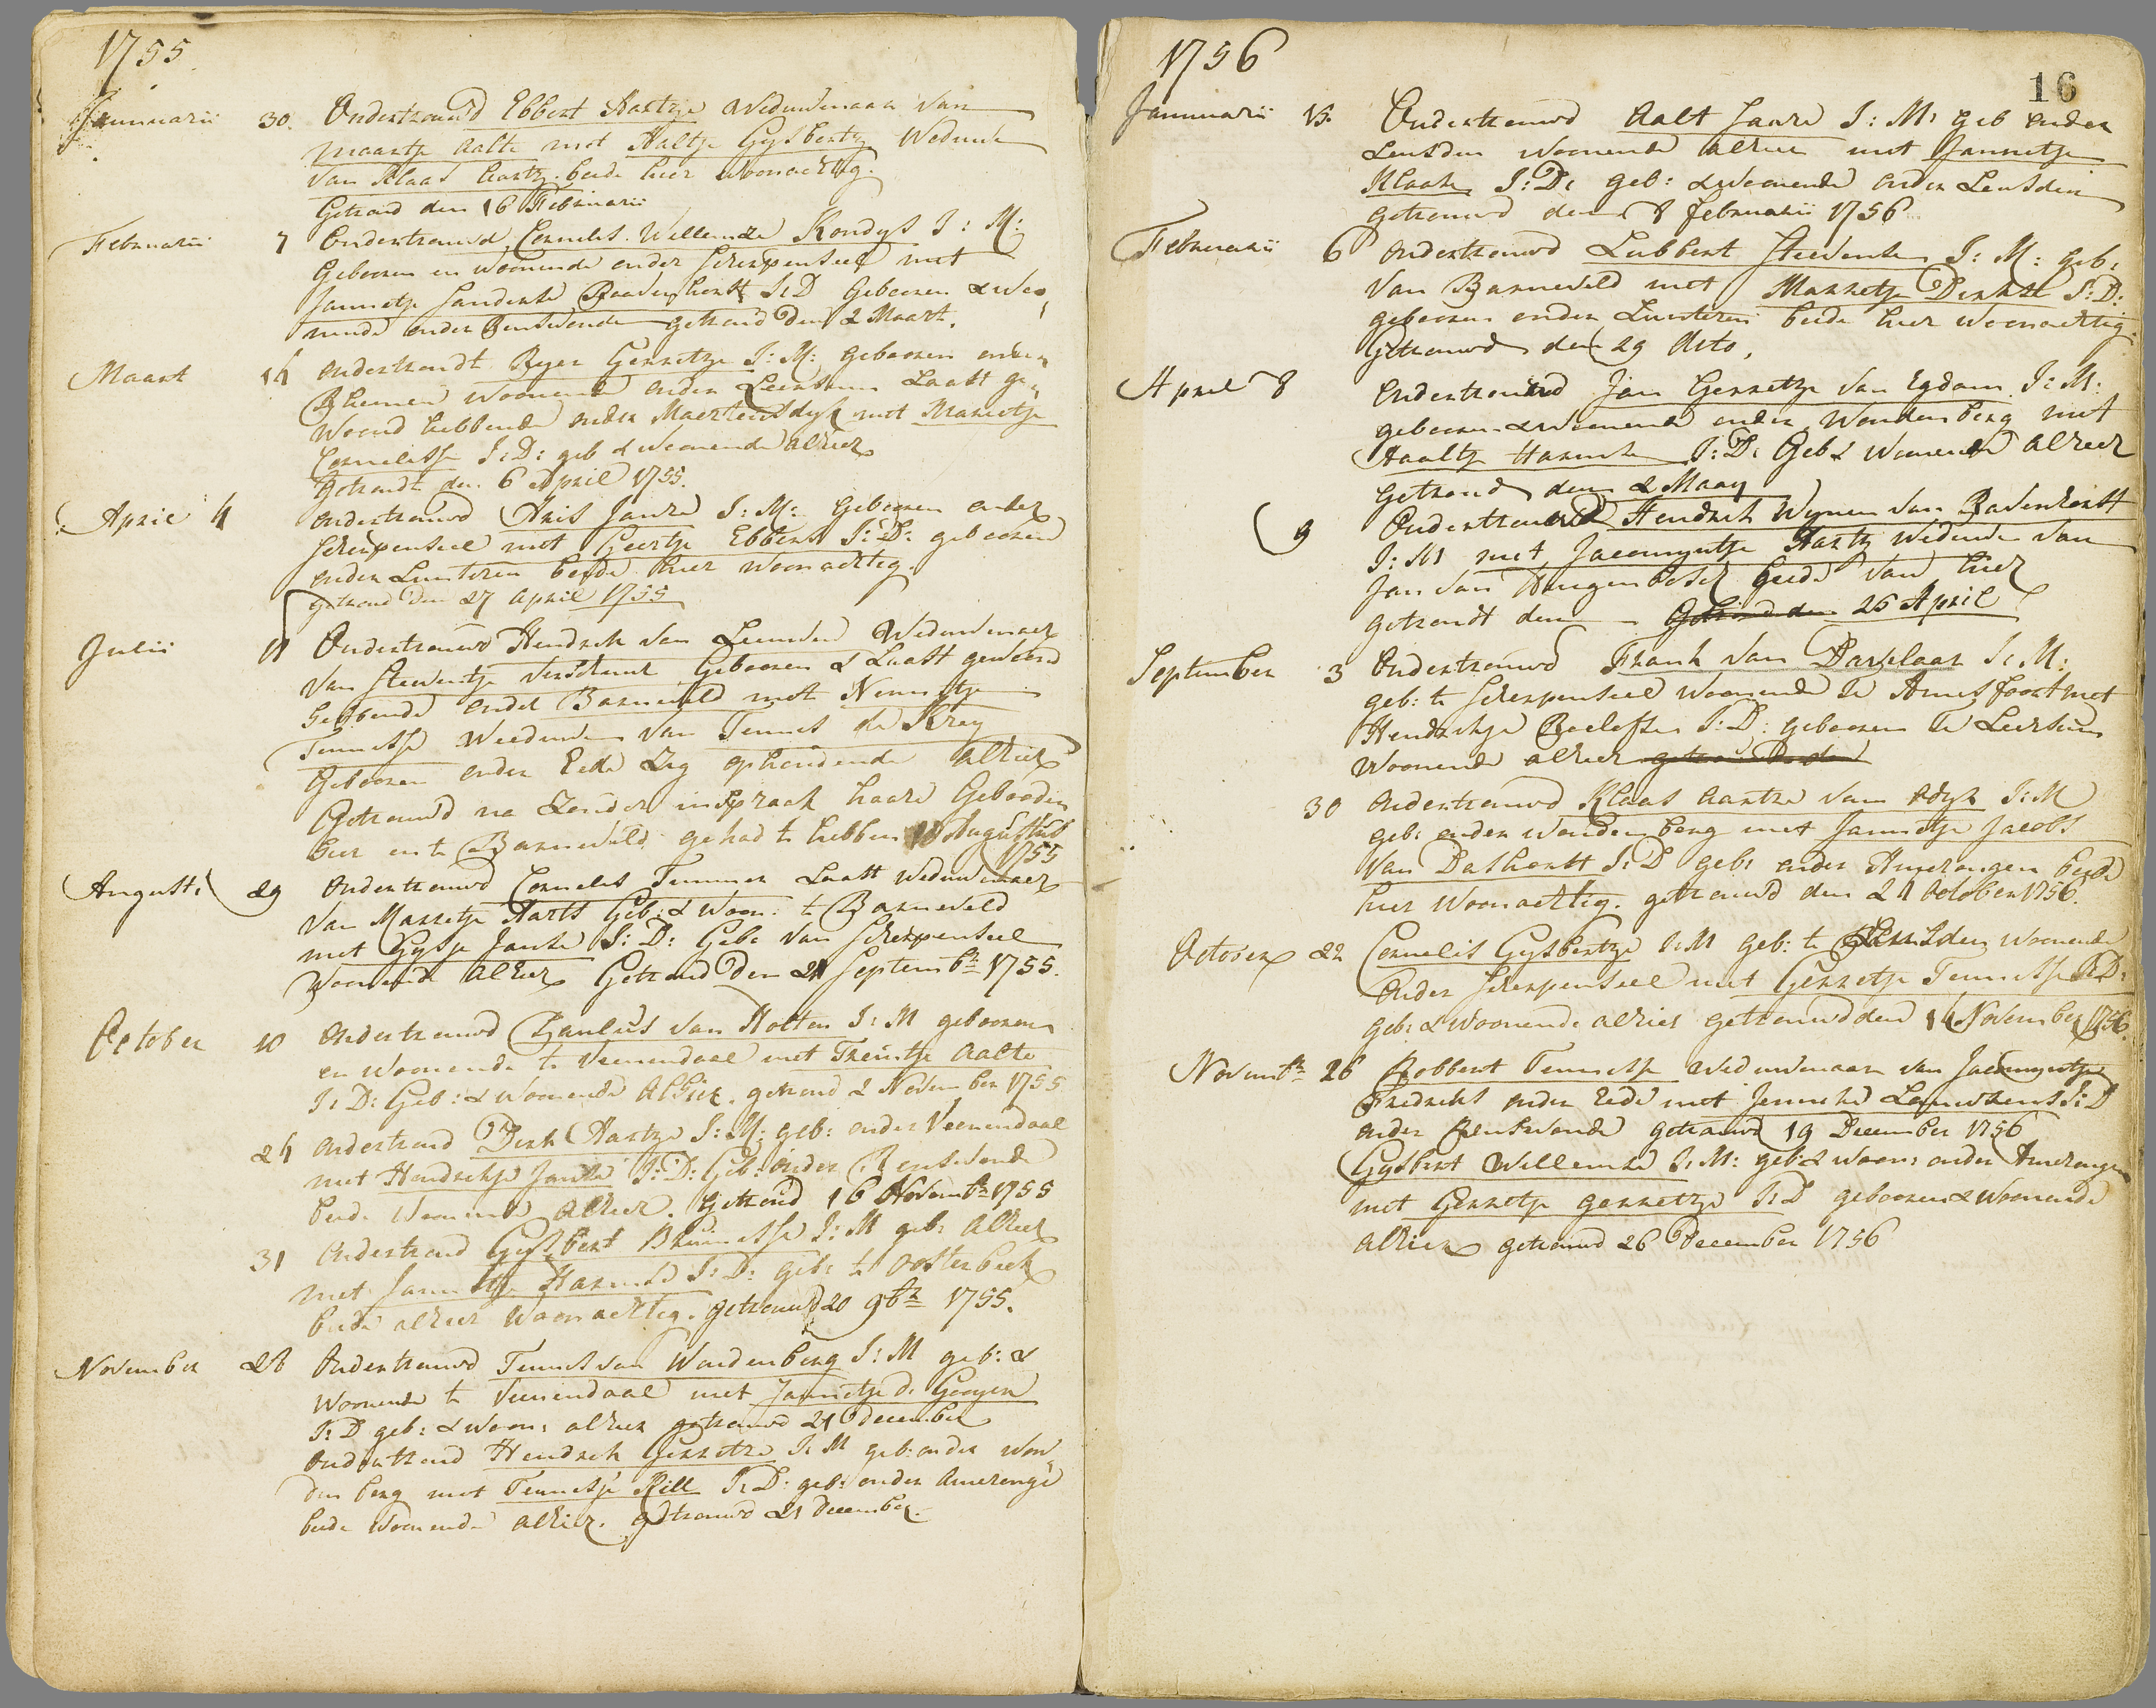 1755
Januarii 30. Ondertrouwd Ebbert Hartze Weduwenaar van
Maartje Aalte met Aaltje Gysbertz Weduwe
van Klaas Aartz. beide hier Woonachtig.
Getroud den 16 Februarii
Februarii 7 Ondertrouwd Cornelis Willemze Kondys J: M:
Gebooren en Woonende onder Scherpenseel met
Jannetje Sanderse Raavenhorst J:D Gebooren & Woo„
nende onder Renswoude getroud den 2 Maart.
Maart 14 Ondertroudt Ryer Gerretze J: M: gebooren onder
Rhenen Woonende onder Leersum Laatst ge„
Woond hebbende onder Maertensdyk met Marretje
Cornelisse J:D: geb & Woonende alhier
Getroudt den 6 April 1755.
April 4 Ondertrouwd Aris Janse J: M: Gebooren onder
Scherpenseel met Geertje Ebbens J: D: gebooren
onder Lunteren beyde hier Woonachtig.
getroud den 27 April 1755
Julii 11 Ondertrouwd Hendrik van Leeuwen Weduwenaer
van Steventje Gebooren & Laatst geweest
hebbende onder Barneveld met Nennetje
Teunisse Weeduwe van Teunis de Kray
Gebooren onder Ede Zig ophoudende alhier
Getrouwd na Zonder inspraak haare Gebooden
hier en te Barneveld gehad te hebben 10 Augustus
1755
Augusti 29 Ondertrouwd Cornelis Timmer Laatst Weduwenaer
van Marretje Aarts Geb: & Woon: te Barneveld
met Gysje Janse J: D: Geb: van Scherpenseel
Woonende alhier Getroud den 21 Septembr 1755.
October 10 Ondertrouwd Paulus van Holten J: M gebooren
en Woonende te Veenendaal met Treintje Aalte
J: D: Geb: & Woonende Alhier. getroud 2 November 1755
24 Ondertroud Dirk Hartze J: M: geb: onder Veenendaal
met Hendrikje Janse J: D: Geb: onder Renswoude
beide Woonende alhier. Getroud 16 Novembr 1755
31 Ondertroud Gysbert Bruinisse J: M geb: Alhier
met Jannetje Harmse J: D: geb: te Oosterbeek
beide alhier Woonachtig. getrouwd 20 9br 1755.
November 28 Ondertrouwd Teunis van Woudenberg J: M geb: &
Woonende te Veenendaal met Jannetje de Gooyer
J: D geb: & Woon: alhier getrouwd 21 December
Ondertroud Hendrik Gerretze J: M geb: onder Wou„
denberg met Teunetje Kill J: D: geb: onder Ameronge
beide Woonende alhier. getrouwd 21 December.
1756
16
Januarii 15. Ondertrouwd Aalt Janse J: M: geb onder
Leusden Woonende alhier met Jannetje
Klaase J: D: geb: & Woonende onder Leusden
getrouwd den 8 Februarii 1756
Februarii 6 Ondertrouwd Lubbert Stevense J: M: geb:
van Barneveld met Marretje Dirkse J: D:
gebooren onder Lunteren beide hier Woonachtig.
Getrouwd den 29 dito.
April 8 Ondertrouwd Jan Gerretze van Egdom J: M:
gebooren & Woonende onder Woudenberg met
Aaltje Harmse J: D: Geb & Woonende alhier
Getroud den 2 Maay
9 Ondertrouwd Hendrik Wynen van Ravenhorst
J: M met Jacomyntje Hartz Weduwe van
Jan van Hengenbosch beide van hier
getroudt den - Getroud den 25 April
September 3 Ondertrouwd Frank van Davelaar J: M:
geb: te Scherpenseel Woonende te Amersfoort met
Hendrikje Roelofse J: D: gebooren te Leersum
Woonende alhier getrouwd den
30 Ondertrouwd Klaas Aartze van Odyk J: M
geb: onder Woudenberg met Jannetje Jacobs
van Dashorst J: D geb: onder Amerongen beide
hier Woonachtig. getrouwd den 24 October 1756.
October 22 Cornelis Gysbertze J: M geb: te Leusden Woonende
onder Scherpenseel met Gerretje Teunisse J: D:
geb: & Woonende alhier getrouwd den 14 November 1756.
Novembr 26 Robbert Teunisse Weduwenaar van Jacomyntje
Fredriks onder Eede met Jenneke Lammerens J: D
onder Renswoude getrouwd 19 December 1756
Gysbert Willemse J: M: geb: & Woon: onder Amerongen
met Gerretje Gerretze J: D gebooren & Woonende
alhier getrouwd 26 December 1756